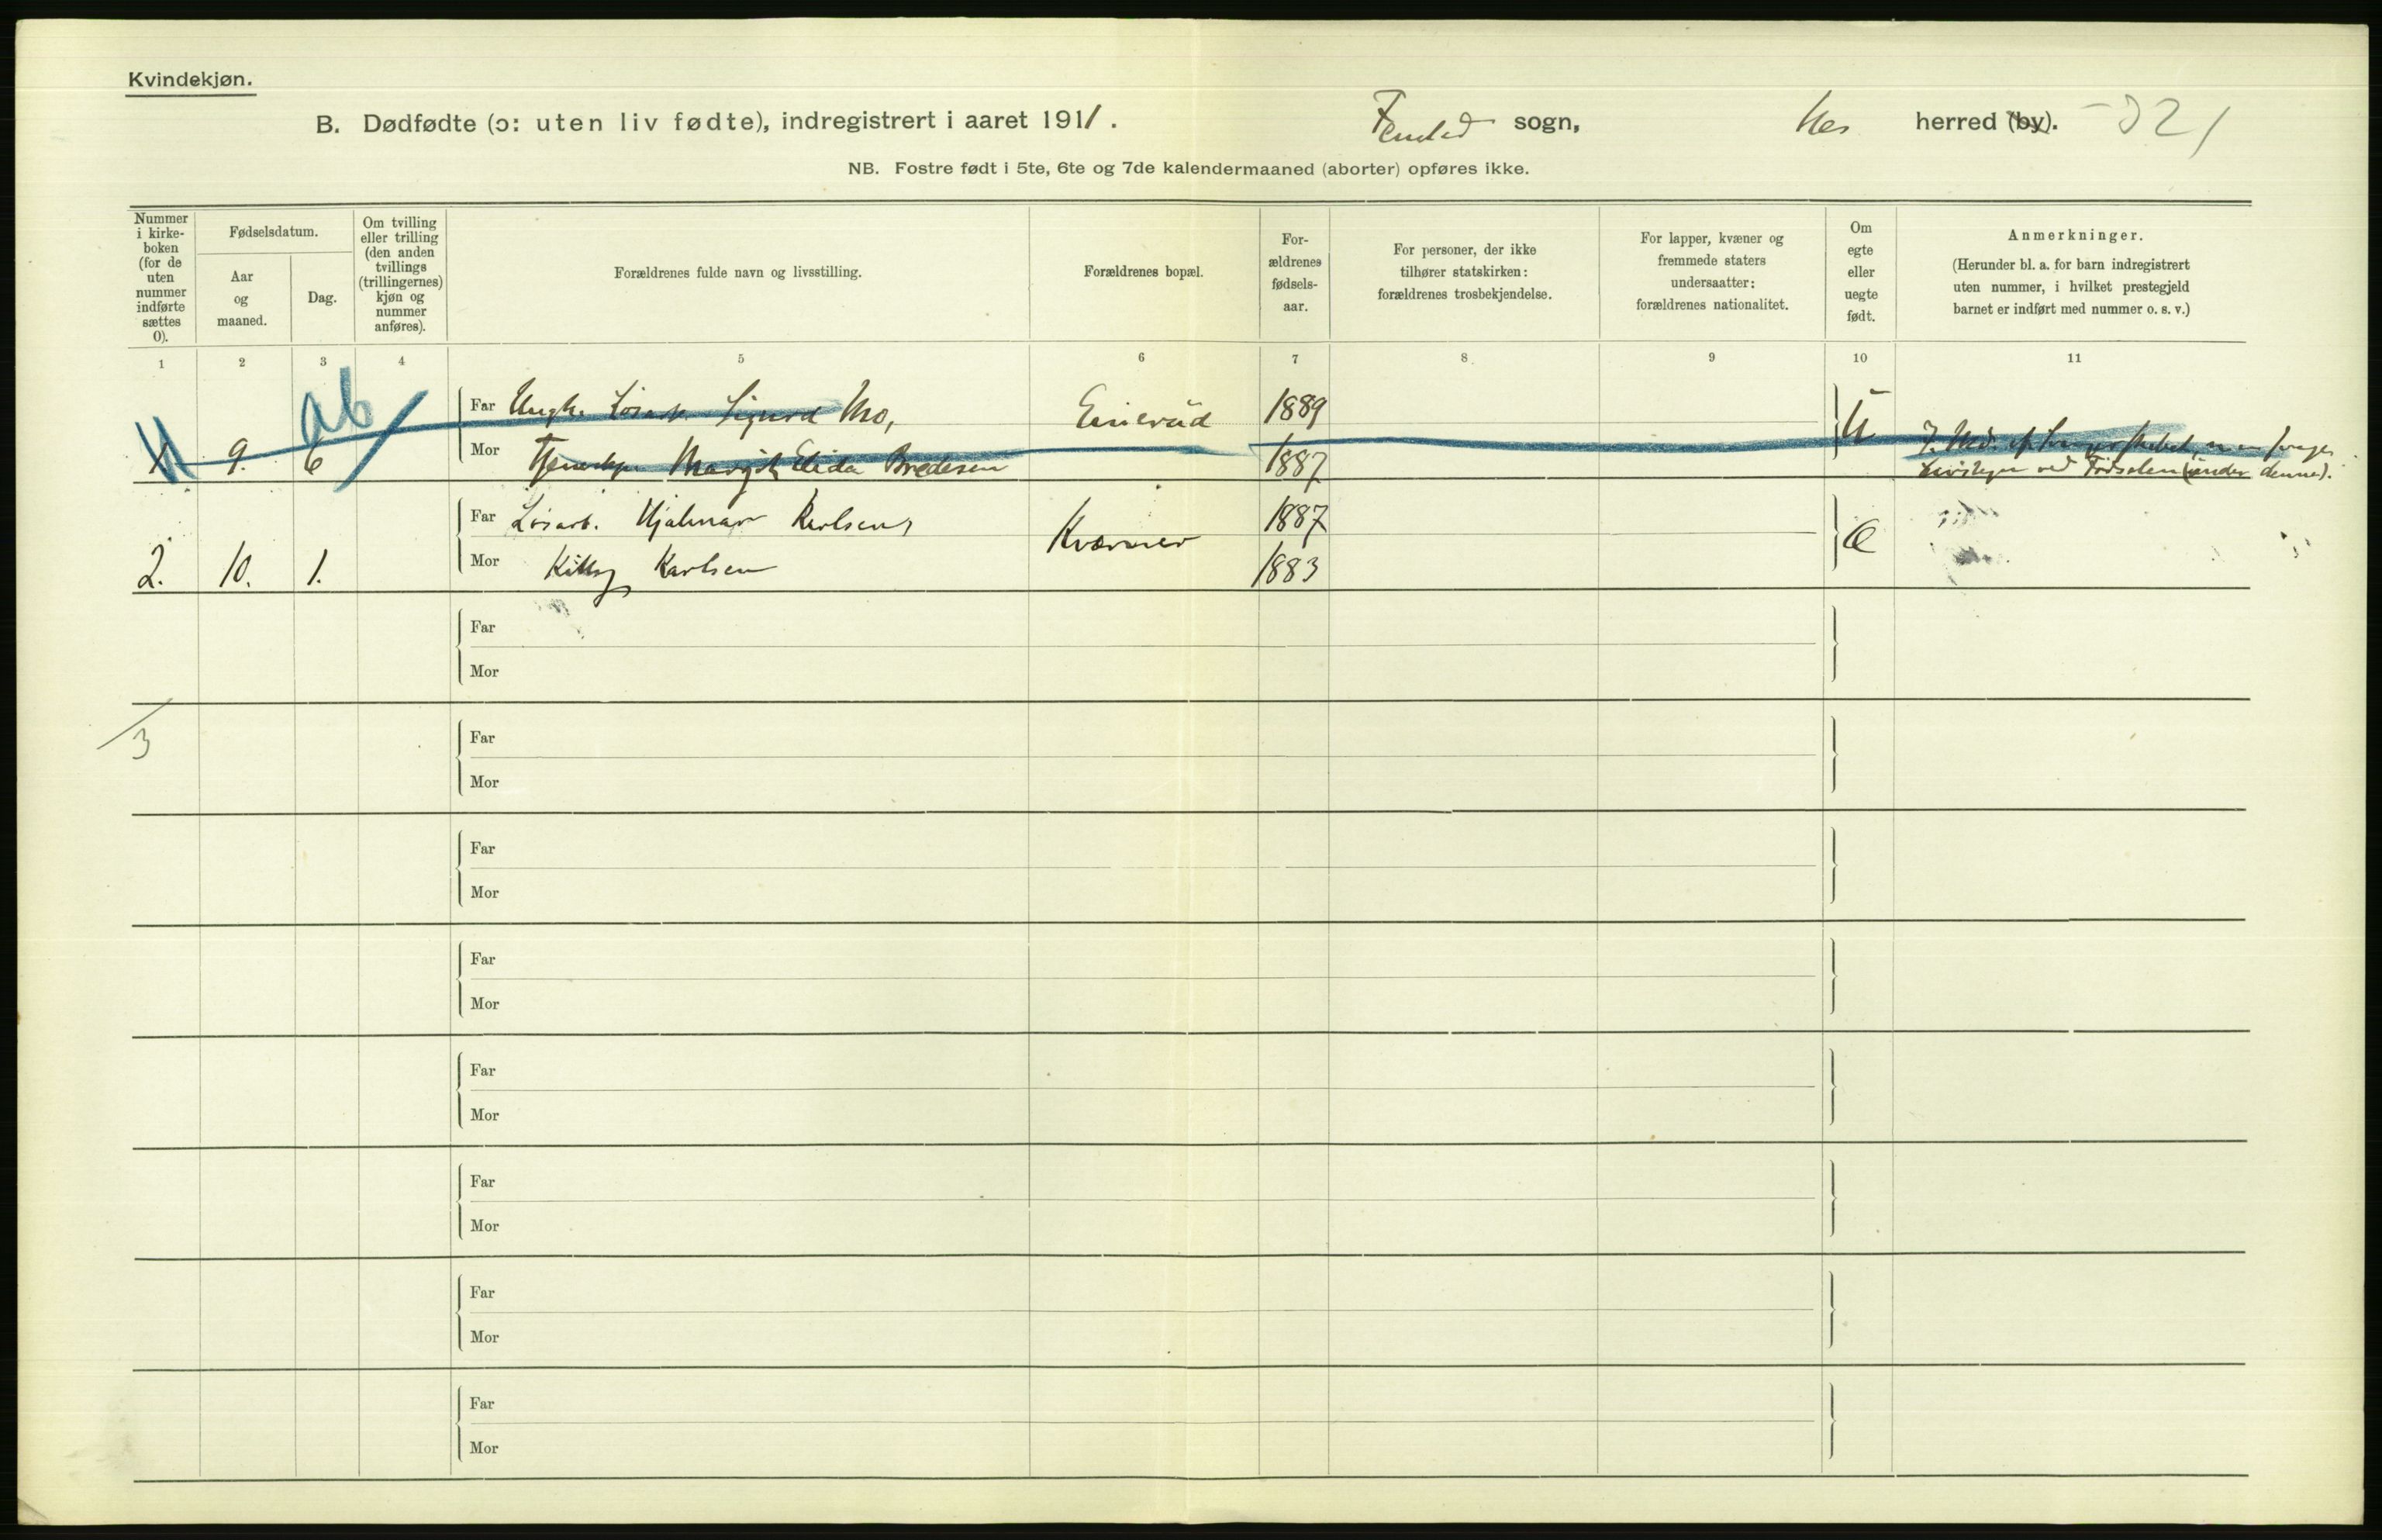 Kvindekjøn.
B. Dødfødte (ɔ: uten liv fødte), indregistrert i aaret 1911. Fenstad sogn, Nes herred (by). 321
NB. Fostre født i 5te, 6te og 7de kalendermaaned (aborter) opføres ikke.
Nummer i kirke-boken (for de uten nummer indførte sættes 0).
Fødselsdatum.
Aar og maaned.
Dag.
Om tvilling eller trilling (den anden tvillings (trillingernes) kjøn og nummer anføres).
Forældrenes fulde navn og livsstilling.
Forældrenes bopæl.
For-ældrenes fødsels-aar.
For personer, der ikke tilhører statskirken: forældrenes trosbekjendelse.
For lapper, kvæner og fremmede staters undersaatter: forældrenes nationalitet.
Om egte eller uegte født.
Anmerkninger.
(Herunder bl. a. for barn indregistrert uten nummer, i hvilket prestegjeld barnet er indført med nummer o. s. v.)
1 2 3 4 5 6 7 8 9 10 11
ab
Far Ungk. Løsarb. Sigurd Mo, 1889
1 9. 6 U
Mor Elida Bredesen 1887
ved Fødselen (under denne).
Far Løsarb. Hjalmar Karlsen, 1887
2. 10. 1. Kværner Æ
Mor Karlsen 1883
Far
Mor
3
Far
Mor
Far
Mor
Far
Mor
Far
Mor
Far
Mor
Far
Mor
Far
Mor